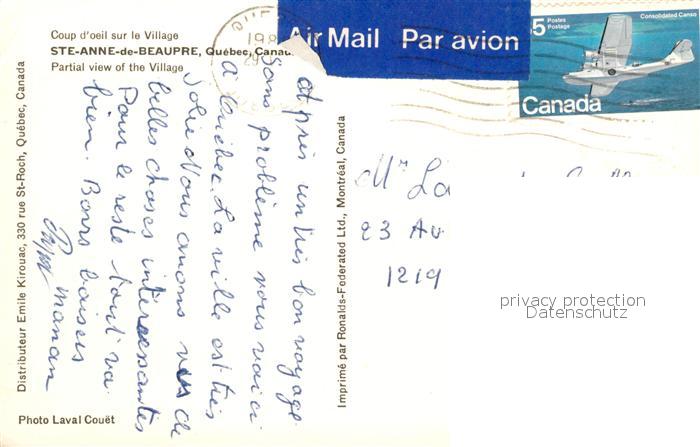 Coup d'oeil sur le Village
STE-ANNE-de-BEAUPRE, Québec, Canad
Partial view of the Village
19
29
Air Mail Par avion
35 Postes Postage
Consolidated Canso
Canada
Après un très bon voyage
sans problème nous voici
à Québec. La ville est très
jolie. Nous avons vus de
belles choses intéressantes
Pour le reste tout va
bien. Bons baisers
maman
Mr
23 Av
1219
Distributeur Emile Kirouac, 330 rue St-Roch, Québec, Canada
Imprimé par Ronalds-Federated Ltd., Montréal, Canada
Photo Laval Couët
privacy protection
Datenschutz